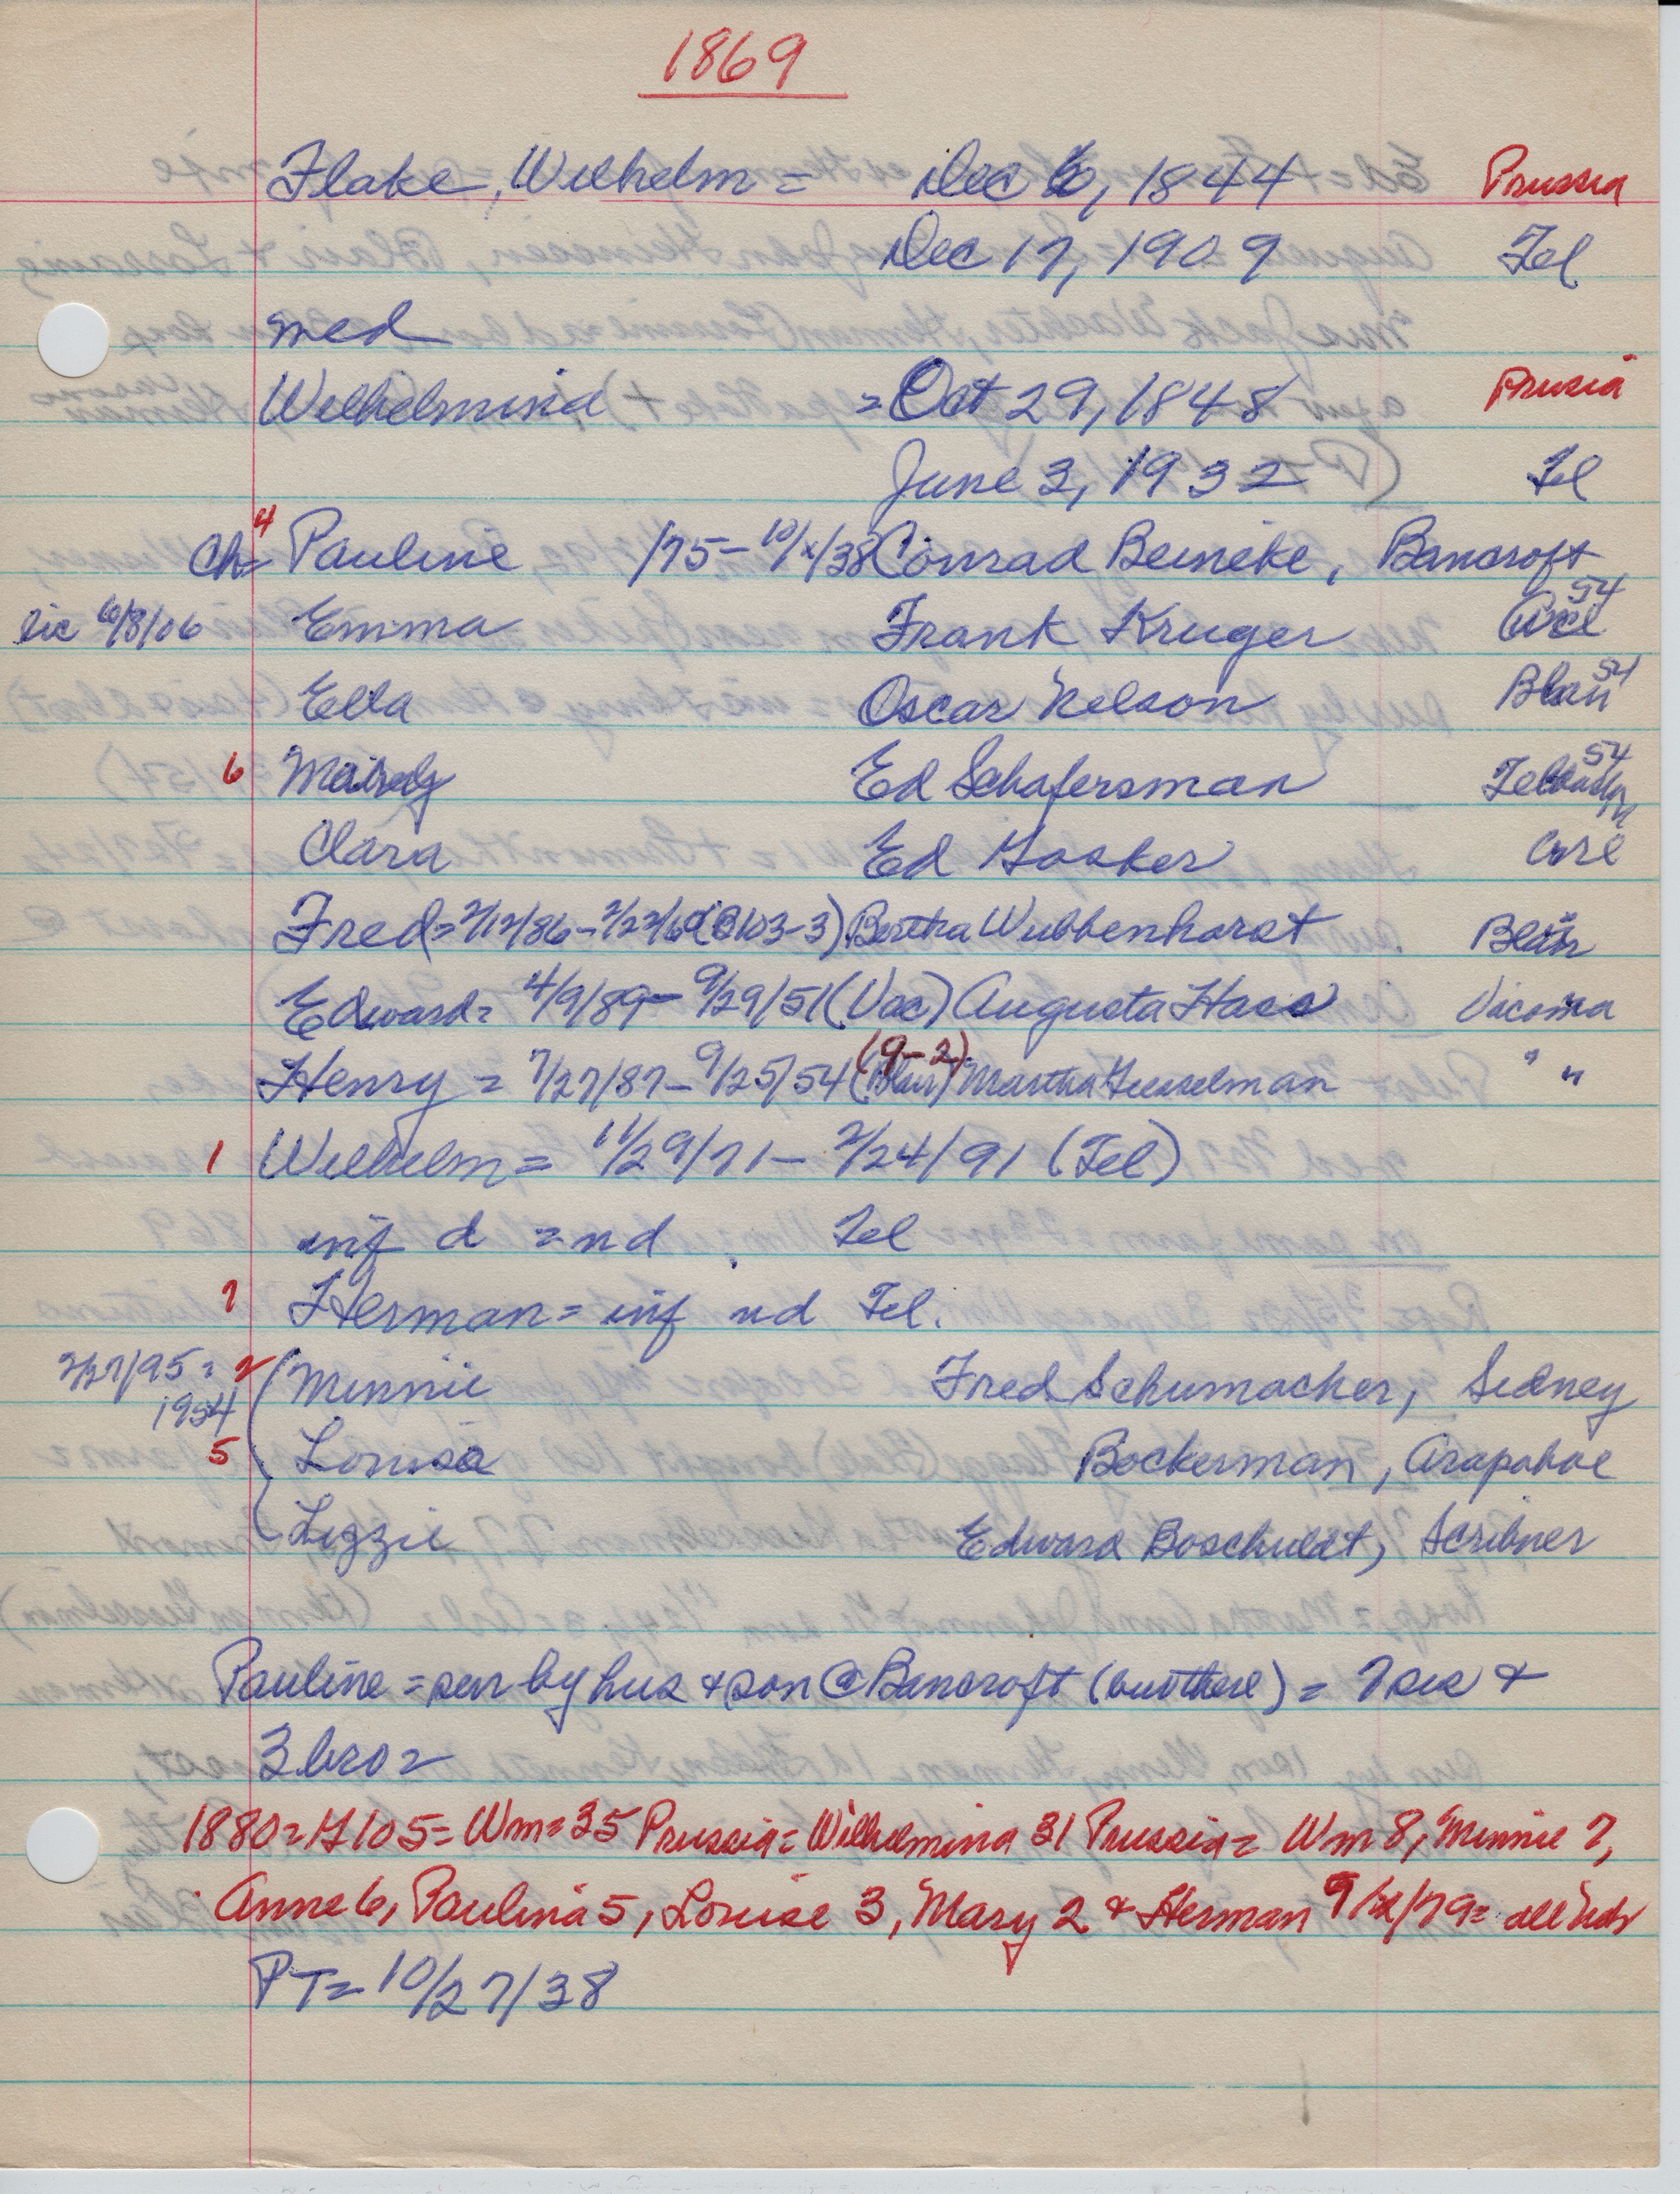 1869
Flake, Wilhelm = Dec 6, 1844 Prussia
Dec 17, 1909 Tel
med
Wilhelmina = Oct 29, 1848 Prusia
June 3, 1932 Tel
Ch= 4 Pauline /75 - 10/x/38 Conrad Beineke, Bancroft
lic 6/8/06 Emma Frank Kruger 54
Ella Oscar Nelson Blair 54
6 Ed Schafersman 54
Clara Ed Gosker
Fred = 2/12/86 - 2/22/60 (B103-3) Bertha Wubbenhorst Blair
Edward = 4/9/89 - 9/29/51 (Vac) Augusta Hass Vacoma
(9-2)
Henry = 7/27/87 - 9/25/54 (Blair) Martha Giesselman " "
1 Wilhelm = 11/29/71 - 2/24/91 (Tel)
inf d = nd Tel
7 Herman = inf nd Tel.
2/27/95 = 2 Minnie Fred Schumacher, Sidney
1954
5 Louisa Bockerman, Arapahoe
Lizzie Edward Boschuldt, Scribner
Pauline = sur by hus & son @ Bancroft (bur there) = 7 sis &
3 bro =
1880 = H105 = Wm = 35 Prussia = Wilhelmina 31 Prussia = Wm 8, Minnie 7,
Anne 6, Paulina 5, Louise 3, Mary 2 & Herman 9/12/79 = all Nebr
PT = 10/27/38